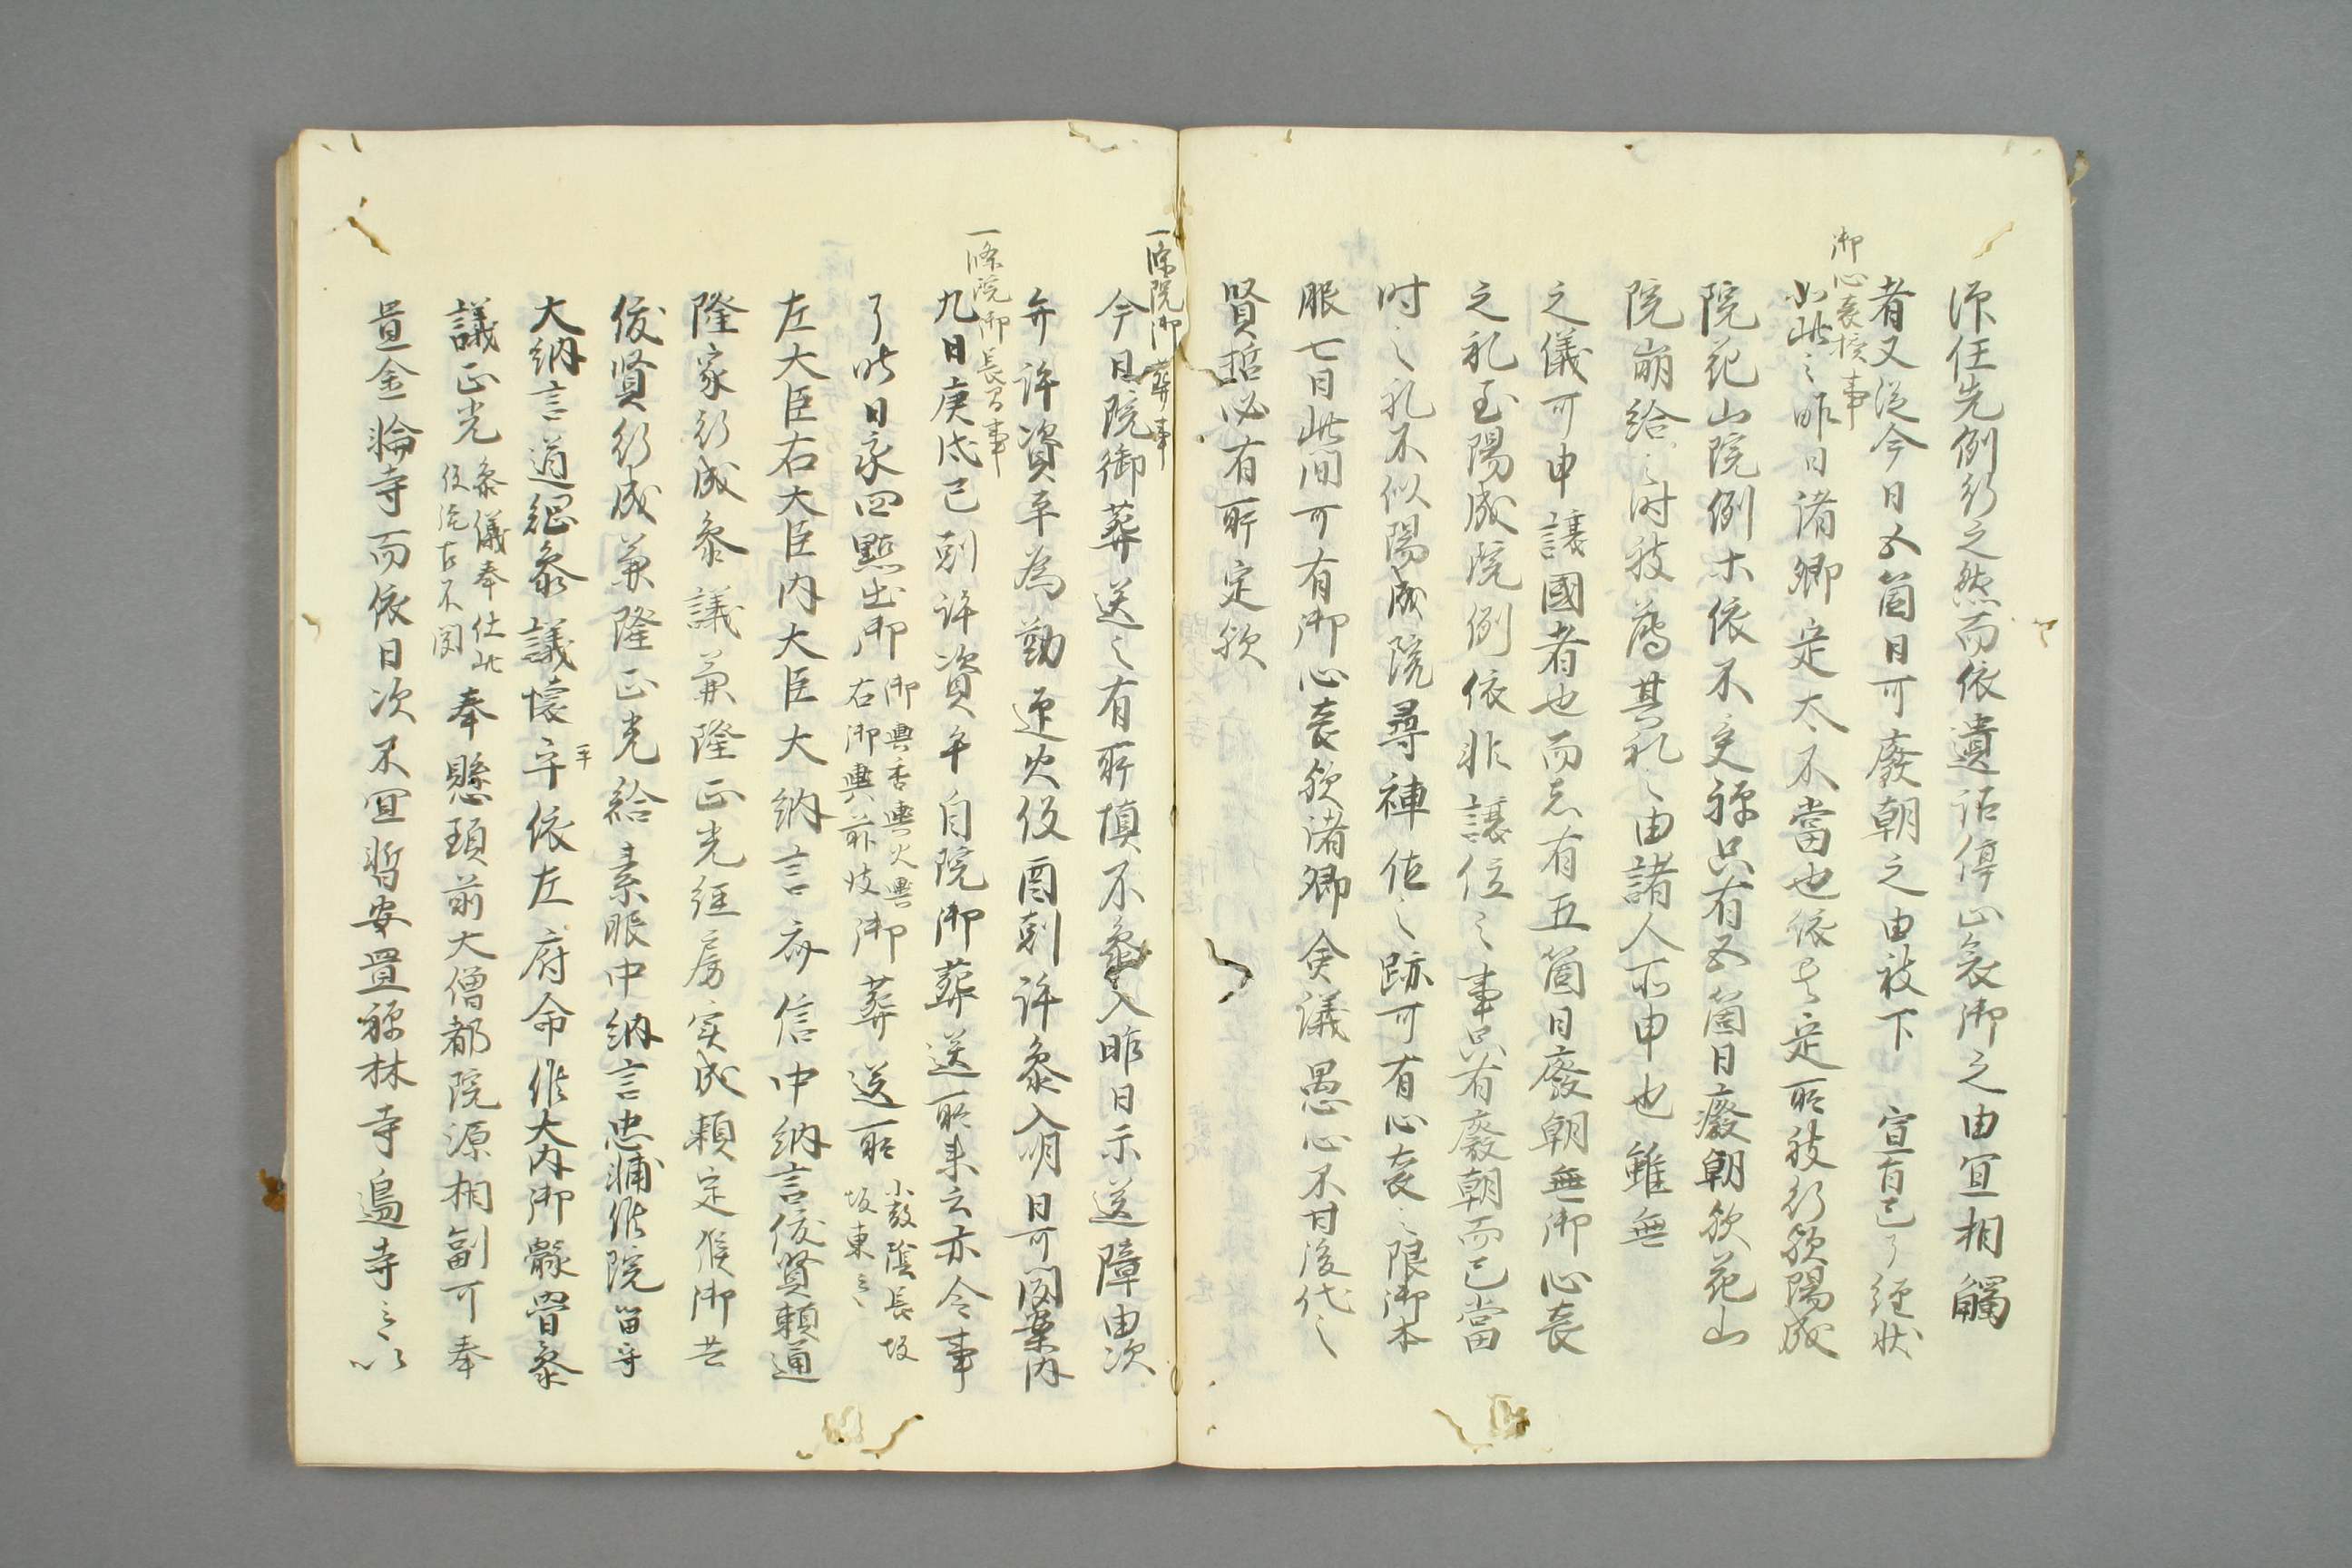 源任先例行之然而依遺詔停止哀御之由宜相觸
者又従今日五箇日可廢朝之由被下宣旨已了経状
御心喪接事
如此之昨日諸卿定太不當也依去定所被行欤陽成
院花山院例木依不受禅只有五箇日癈朝欤花山
院崩給之時被薦其礼之由諸人所申也雖無
之儀可申讓國者也而忘有五箇日癈朝無御心喪
之礼至陽成院例依非譲位之事只有廢朝而已當
时之礼不似陽成院尋禅位之跡可有心喪之限御本
服七日此间可有御心喪欤諸卿僉議愚心不甘後代之
賢哲必有所定欤
一條院御葬事
今日院御葬送之有所慎不参入昨日示送障由次
弁許資平為勤逆火役酉剋許参入明日可聞案内
一條院御長習事
九日庚戌已剋許資平自院御葬送所来云亦今事
了昨日亥四點出御御輿香輿火輿右御輿前炊御葬送所小鼓陰長坂坂東之
左大臣右大臣内大臣大納言斉信中納言俊賢頼通
隆家行成参議兼隆正光経房実成頼定候御共
俊賢行成兼隆正光給素服中納言忠浦候院留守
大納言道綱参議懐平依左府命候大内御骸骨参
議正光参儀奉仕此役往古不聞奉懸頚前大僧都院源相副可奉
置金輪寺而依日次不宜暫安置禅林寺邉寺之以